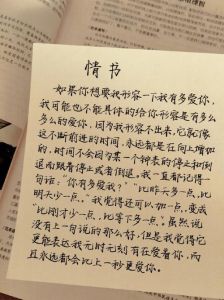 情书
如果你想要我形容一下我有多爱你,
我可能也不能具体的给你形容是有多么
多么的爱你,因为我形容不出来,它就像
这不断前进的时间,永远都是在向上增加
的,时间不会因为某一个钟表的停止和倒
退而跟着停止或者倒退,我一直都记得一
句话:“你有多爱我?”“比昨天多一点,比
明天少一点。”我觉得还可以加一点,变成
“比刚才多一点,比等下多一点”。虽然说
没有上一句说的那么好,但是我觉得它
更能表达我无时无刻有在爱着你,而
且永远都会比上一秒更爱你。